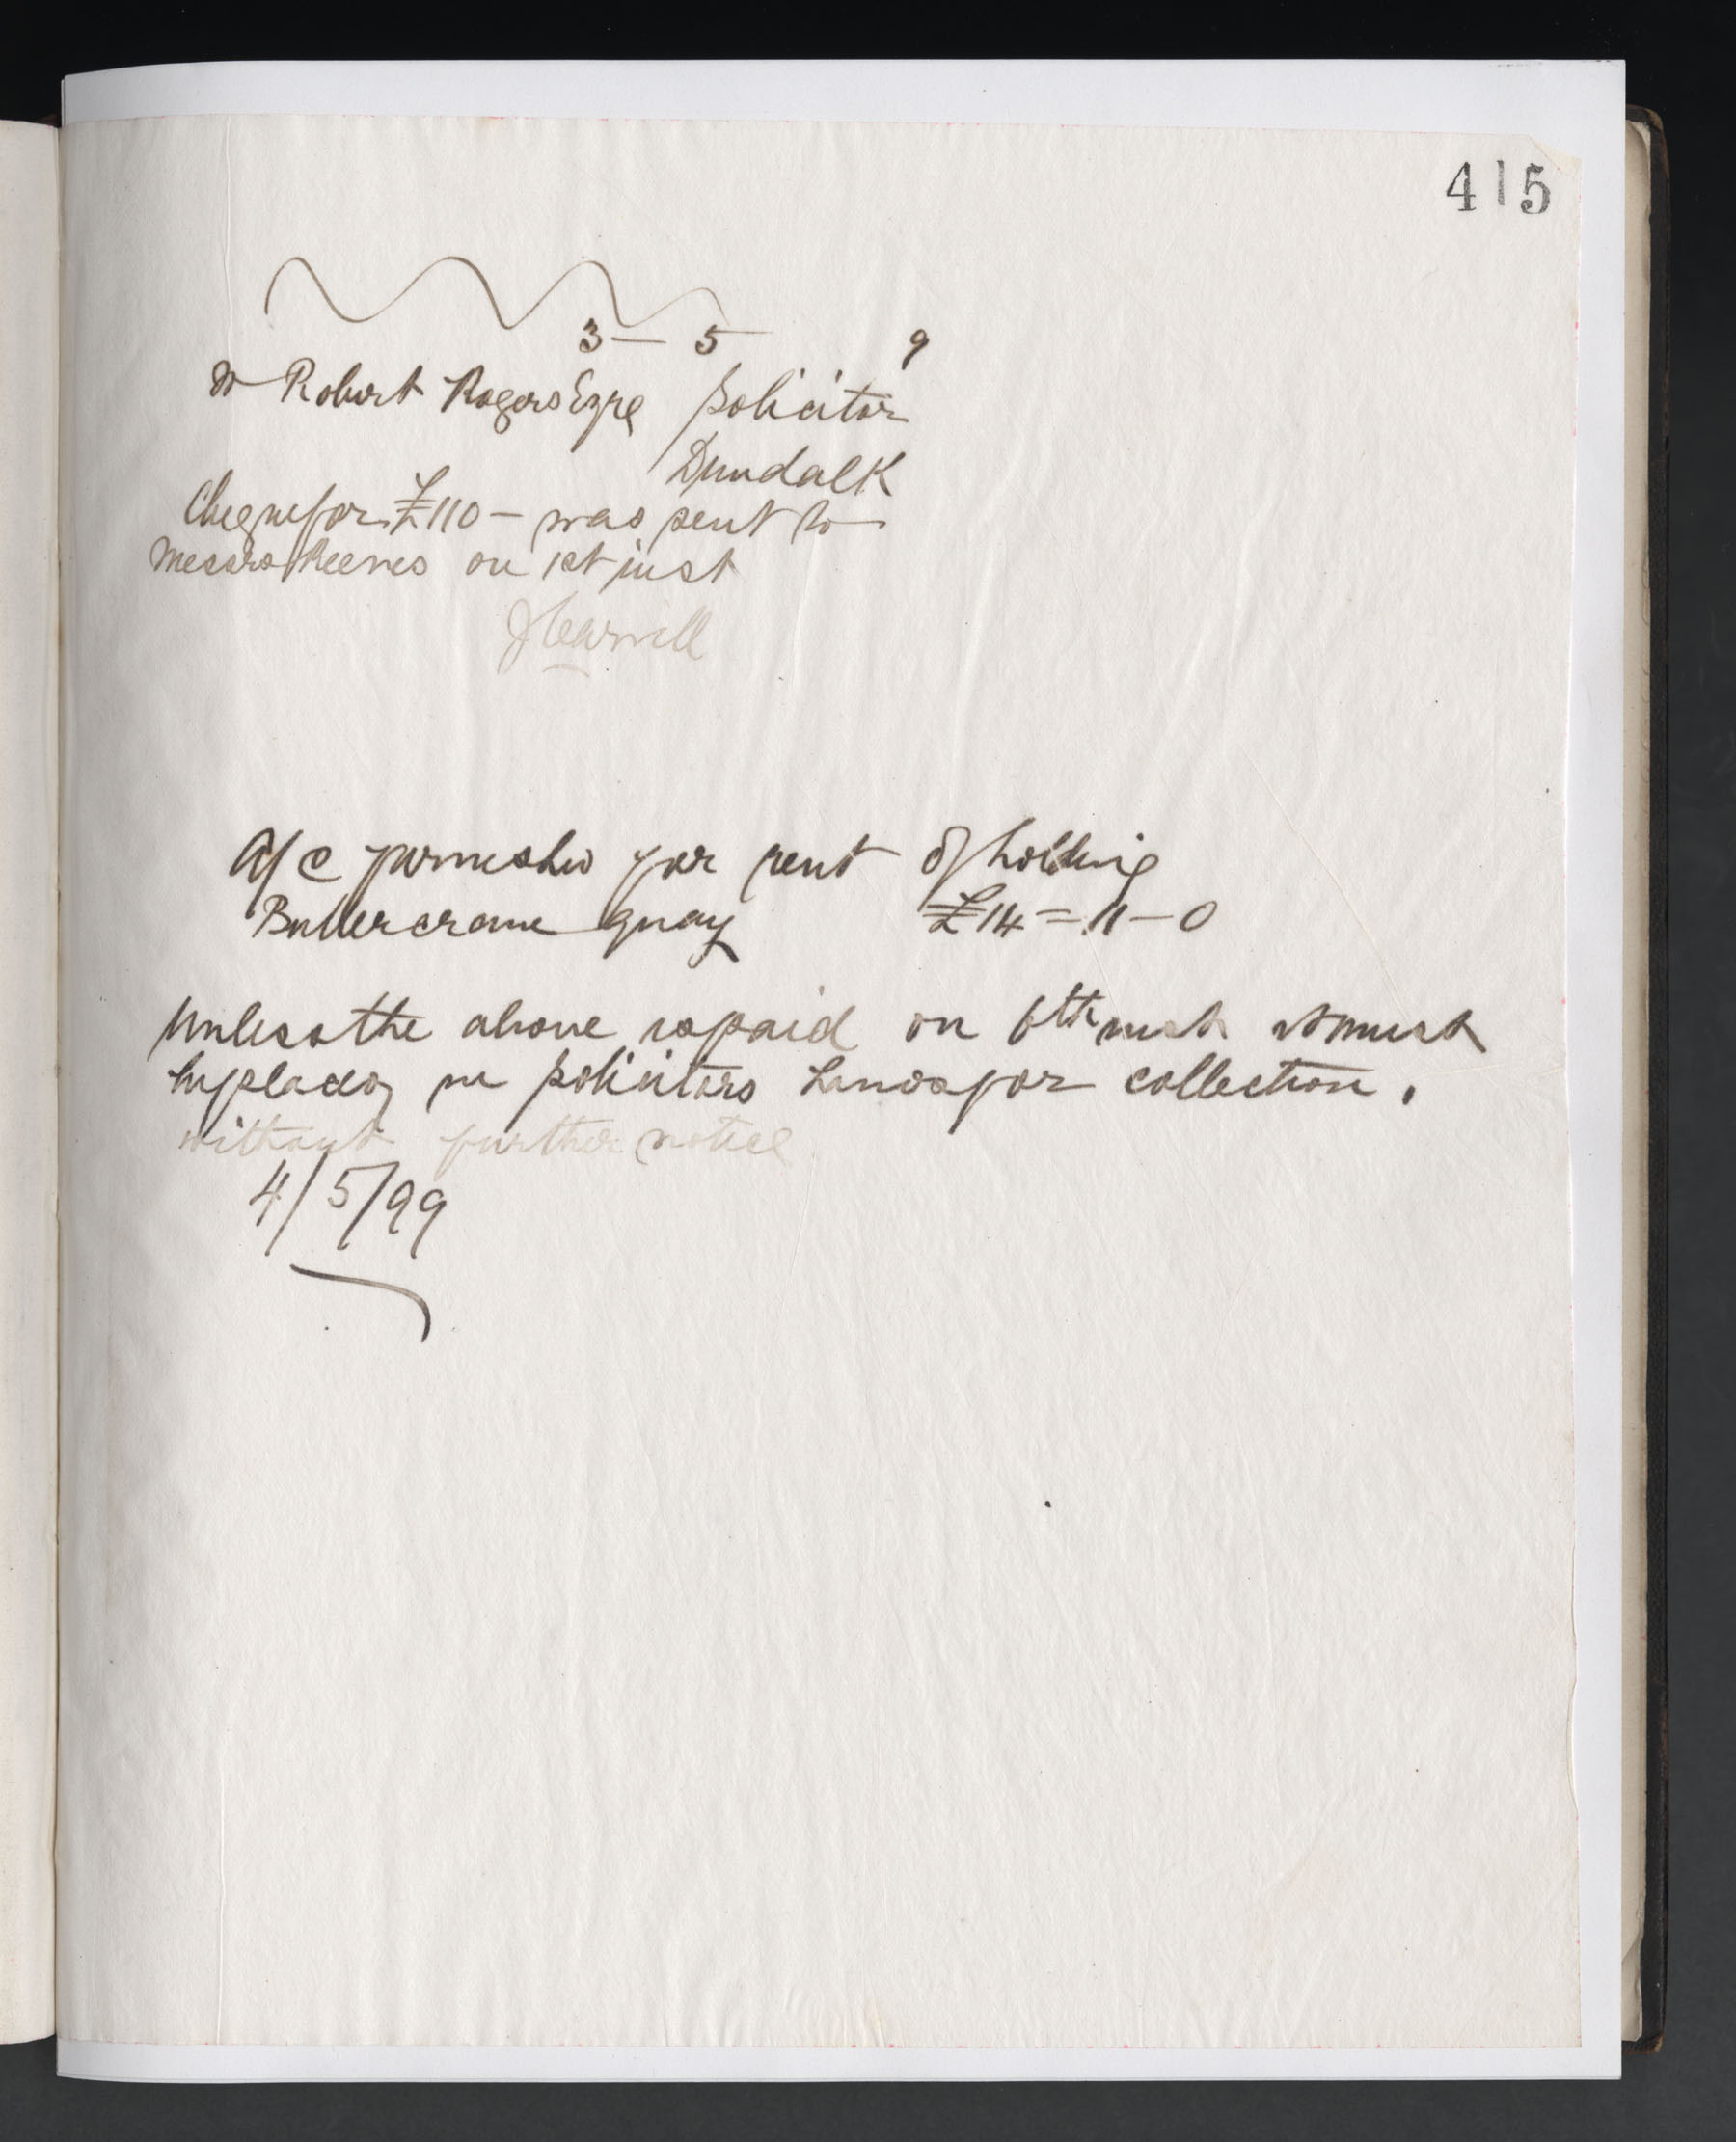 415
3 — 5 9
Mr Robert Rogers Esqre Solicitor
Dundalk
Cheque for £110 – was sent to
Messrs Reeves on 1st inst
J Carvill
A/c furnished for rent of holding
Buttercrane quay £14 = 11 – 0
Unless the above is paid on 6th inst it must
be placed in solicitors hands for collection.
without further notice
4/5/99